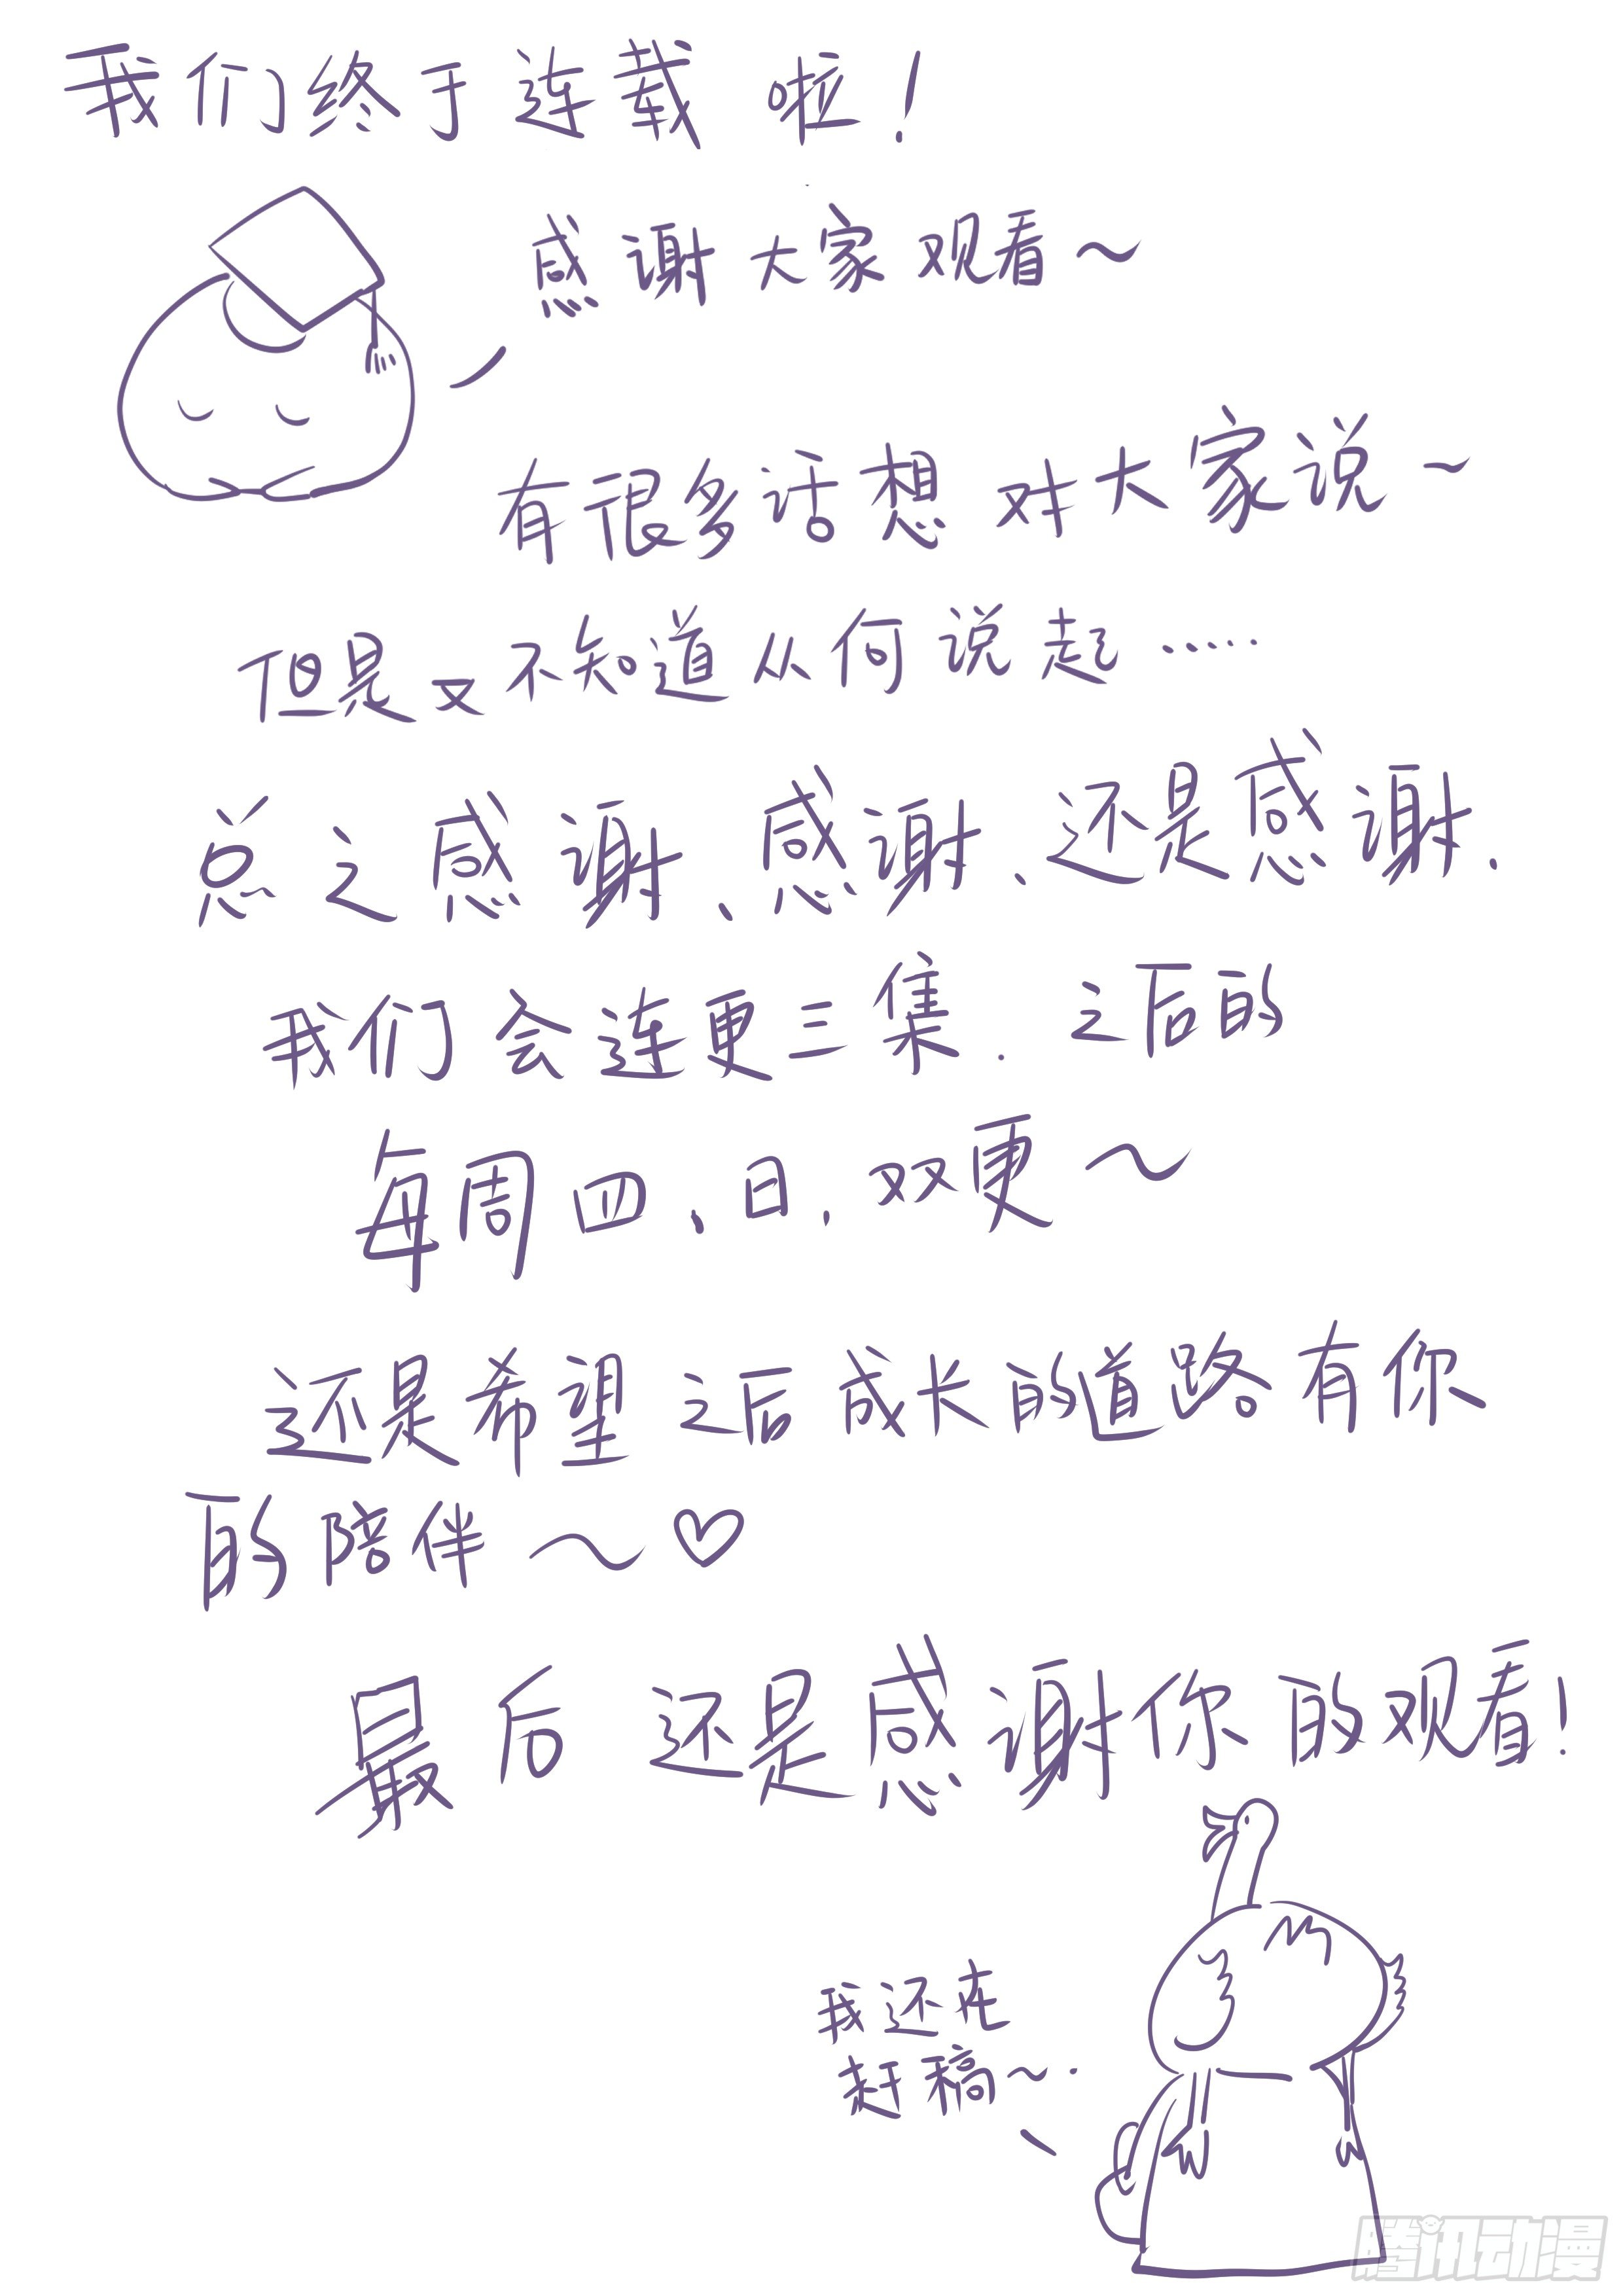 我们终于连载啦！
感谢大家观看～
有很多话想对大家说～
但是又不知道从何说起……
总之感谢、感谢、还是感谢.
我们会连更三集. 之后的
每周四、日. 双更～
还是希望之后成长的道路有你
的陪伴～♡
最后还是感谢你的观看！
我还在
赶稿～.
腾讯动漫